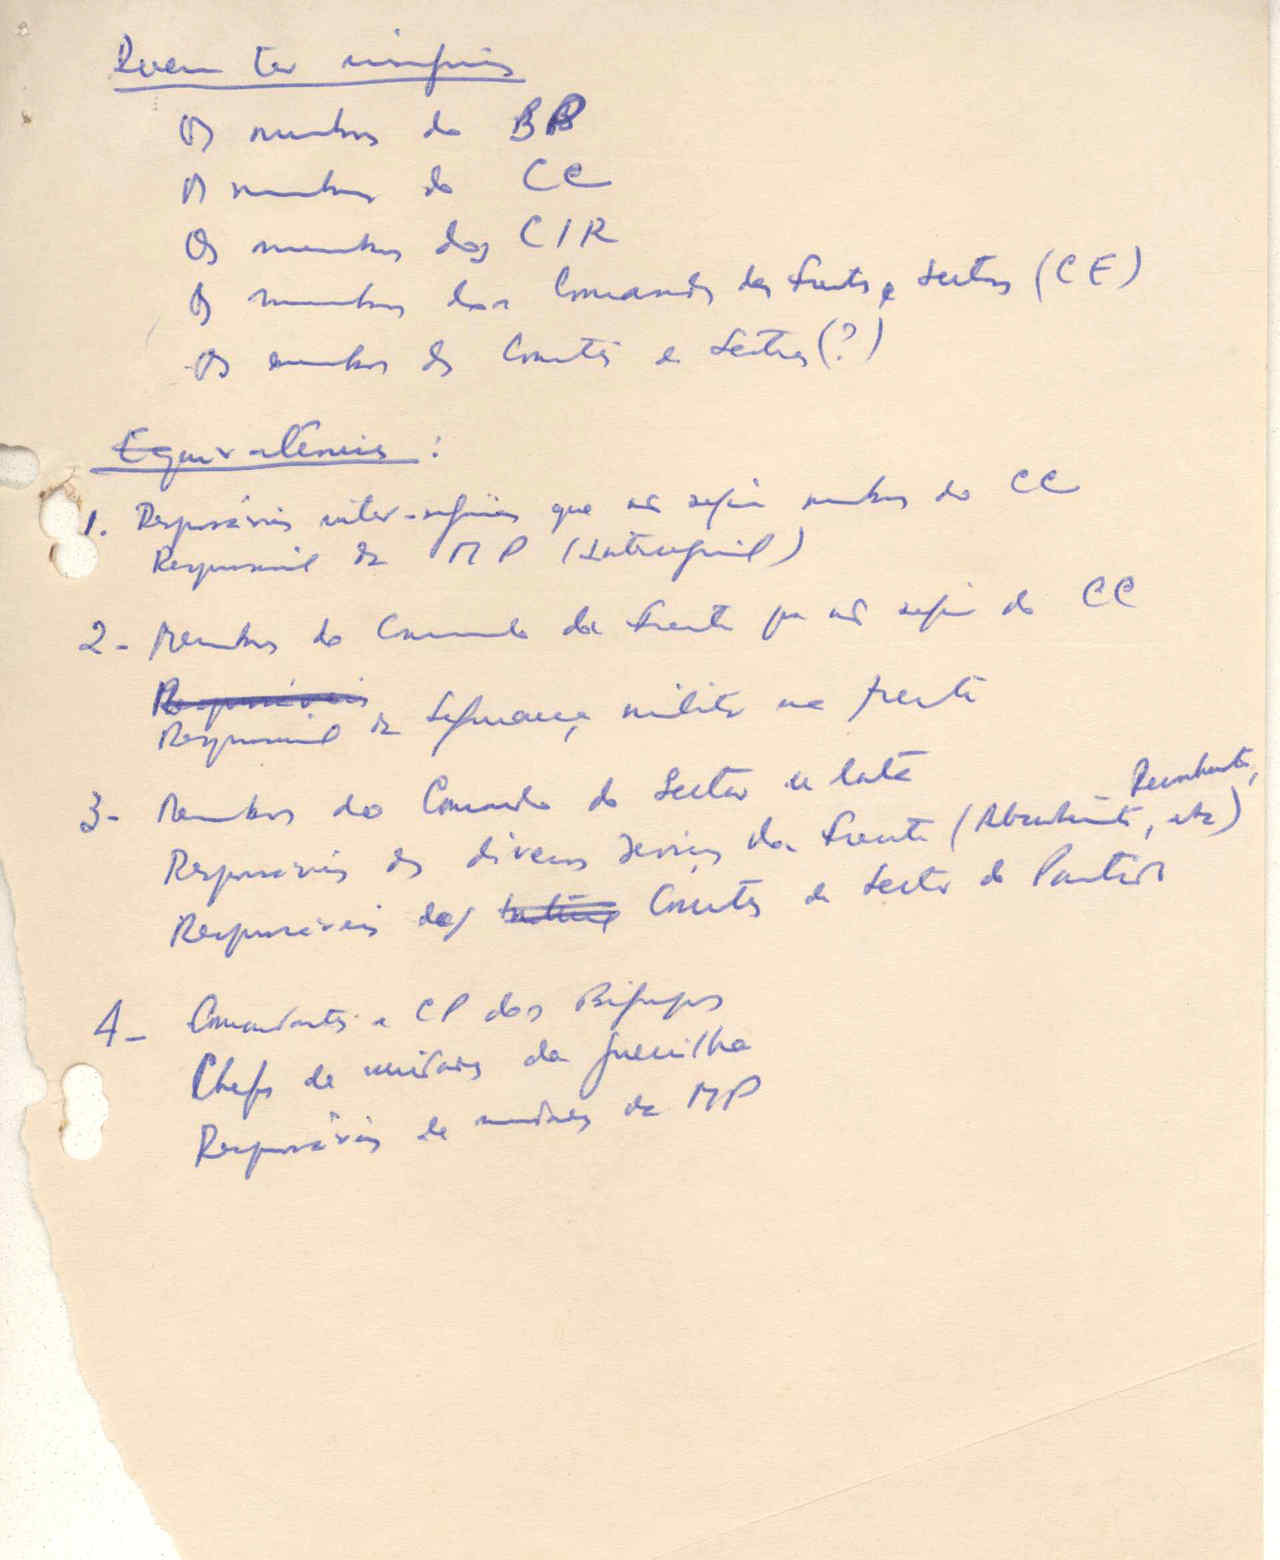 Devem ter insígnias
Os membros do BP
Os membros do CC
Os membros dos CIR
Os membros dos Comandos das Frentes e Sectores (CE)
Os membros dos Comités de Sectores (?)
Equivalências :
1. Responsáveis inter-regiões que não sejam membros do CC
Responsável da MP (Interregional)
2- Membros do Comando da Frente que não sejam do CC
Responsáveis
Responsável da Segurança militar na frente
3- Membros do Comando do Sector
Responsáveis dos diversos serviços da Frente (Abastecimento, Reconhecimento, etc)
Responsáveis dos Comités de Sector do Partido
4- Comandantes e CP dos Bigrupos
Chefes de unidades da guerrilha
Responsáveis de unidades da MP